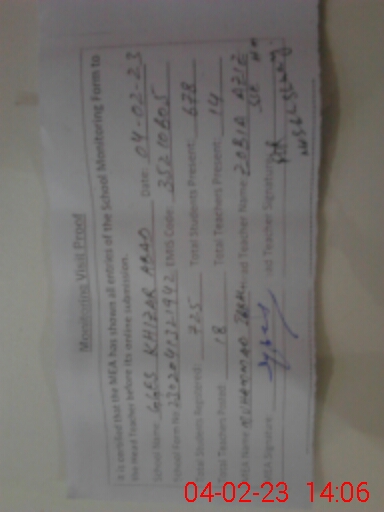 Monitoring Visit Proof
It is certified that the MEA has shown all entries of the School Monitoring Form to
the Head Teacher before its online submission.
School Name GGES KHIZAR ABAD Date: 04-02-23
School Form No. EMIS Code: 35210805
Total Students Registered: 725 Total Students Present: 678
Total Teachers Posted: 18 Total Teachers Present: 14
MEA Name MUHAMMAD Head Teacher Name ZOBIA AZIZ
MEA Signature Head Teacher Signature
04-02-23 14:06